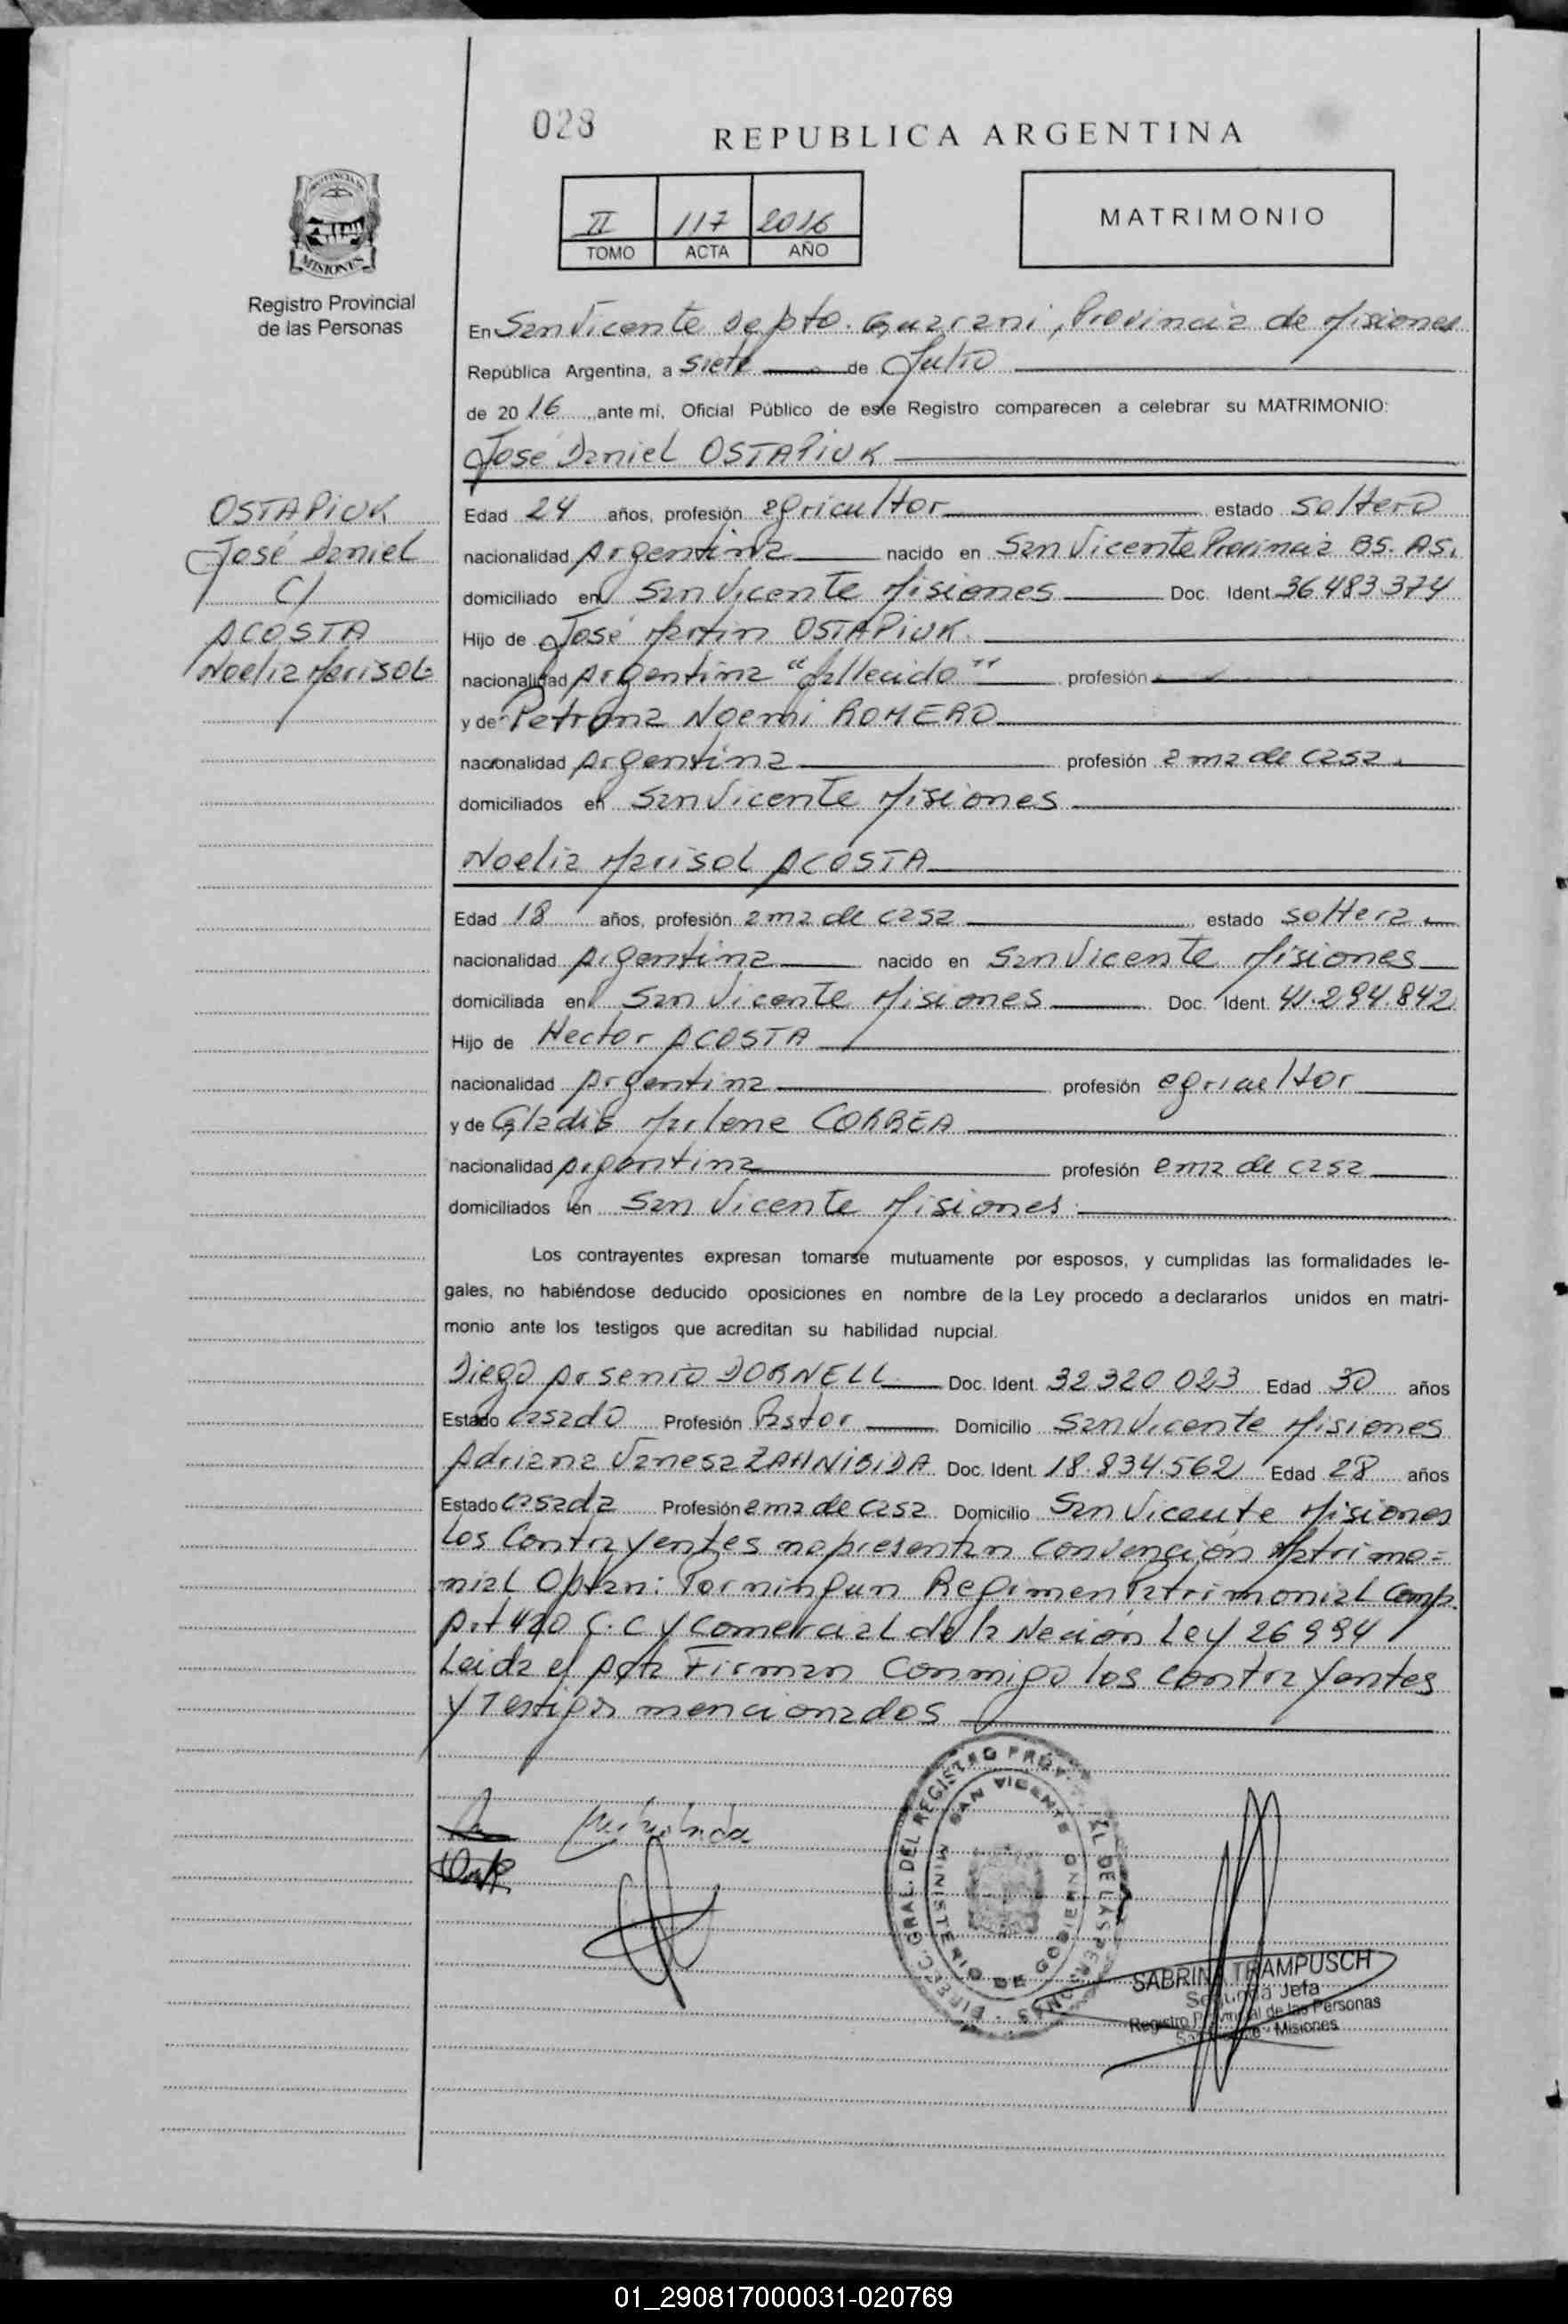 028
REPUBLICA ARGENTINA
II 117 2016
TOMO ACTA AÑO
MATRIMONIO
PROVINCIA DE
MISIONES
Registro Provincial
de las Personas
En San Vicente Depto. Guarani, Provincia de Misiones
República Argentina, a siete de Julio
de 2016 ante mí, Oficial Público de este Registro comparecen a celebrar su MATRIMONIO:
José Daniel OSTAPIUK
OSTAPIUK
José Daniel
C/
ACOSTA
Noelia Marisol
Edad 24 años, profesión agricultor estado soltero
nacionalidad Argentina nacido en San Vicente Provincia BS. AS.
domiciliado en San Vicente Misiones Doc. Ident. 36.483.374
Hijo de José Martin OSTAPIUK
nacionalidad Argentina "fallecido" profesión
y de Petrona Noemi ROMERO
nacionalidad Argentina profesión ama de casa
domiciliados en San Vicente Misiones
Noelia Marisol ACOSTA
Edad 18 años, profesión ama de casa estado soltera
nacionalidad Argentina nacido en San Vicente Misiones
domiciliada en San Vicente Misiones Doc. Ident. 41.294.842
Hijo de Hector ACOSTA
nacionalidad Argentina profesión agricultor
y de Gladis Marlene CORREA
nacionalidad Argentina profesión ama de casa
domiciliados en San Vicente Misiones
Los contrayentes expresan tomarse mutuamente por esposos, y cumplidas las formalidades le-
gales, no habiéndose deducido oposiciones en nombre de la Ley procedo a declararlos unidos en matri-
monio ante los testigos que acreditan su habilidad nupcial.
Diego Arsenio DORNELL Doc. Ident. 32.320.023 Edad 30 años
Estado casado Profesión Pastor Domicilio San Vicente Misiones
Adriana Vanesa ZAHNIBIDA Doc. Ident. 18.834.562 Edad 28 años
Estado casada Profesión ama de casa Domicilio San Vicente Misiones
Los Contrayentes no presentan convención Matrimo=
nial Optan: Por ningun Regimen Patrimonial Comp.
Art 420 C.C y Comercial de la Nación Ley 26994
Leida el Acta Firman Conmigo los contrayentes
y Testigos mencionados
DIREC. GRAL. DEL REGISTRO PROVINCIAL DE LAS PERSONAS
SAN VICENTE
MINISTERIO DE GOBIERNO
SABRINA TRAMPUSCH
Segunda Jefa
Registro Provincial de las Personas
San Vicente - Misiones
01_290817000031-020769